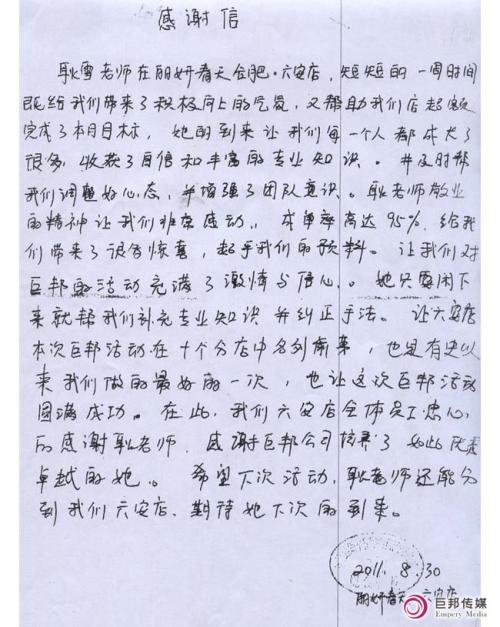 感谢信
耿雪老师在丽妍春天合肥·六安店,短短的一周时间
既给我们带来了积极向上的气氛,又帮助我们店超额
完成了本月目标,她的到来让我们每一个人都成长了
很多,收获了自信和丰富的专业知识。并及时帮
我们调整好心态,并增强了团队意识。耿老师敬业
的精神让我们非常感动。成单率高达95%.给我
们带来了很多惊喜,超乎我们的预料。让我们对
巨邦的活动充满了激情与信心。她只要闲下
来就帮我们补充专业知识并纠正手法。让六安店
本次巨邦活动在十个分店中名列前茅,也是有史以
来我们做的最好的一次,也让这次巨邦活动
圆满成功。在此,我们六安店全体员工忠心
的感谢耿老师,感谢巨邦公司培养了如此优秀
卓越的她。希望下次活动,耿老师还能分
到我们六安店、期待她下次的到来。
2011.8.30
丽妍春天 六安店
巨邦传媒
Empery Media